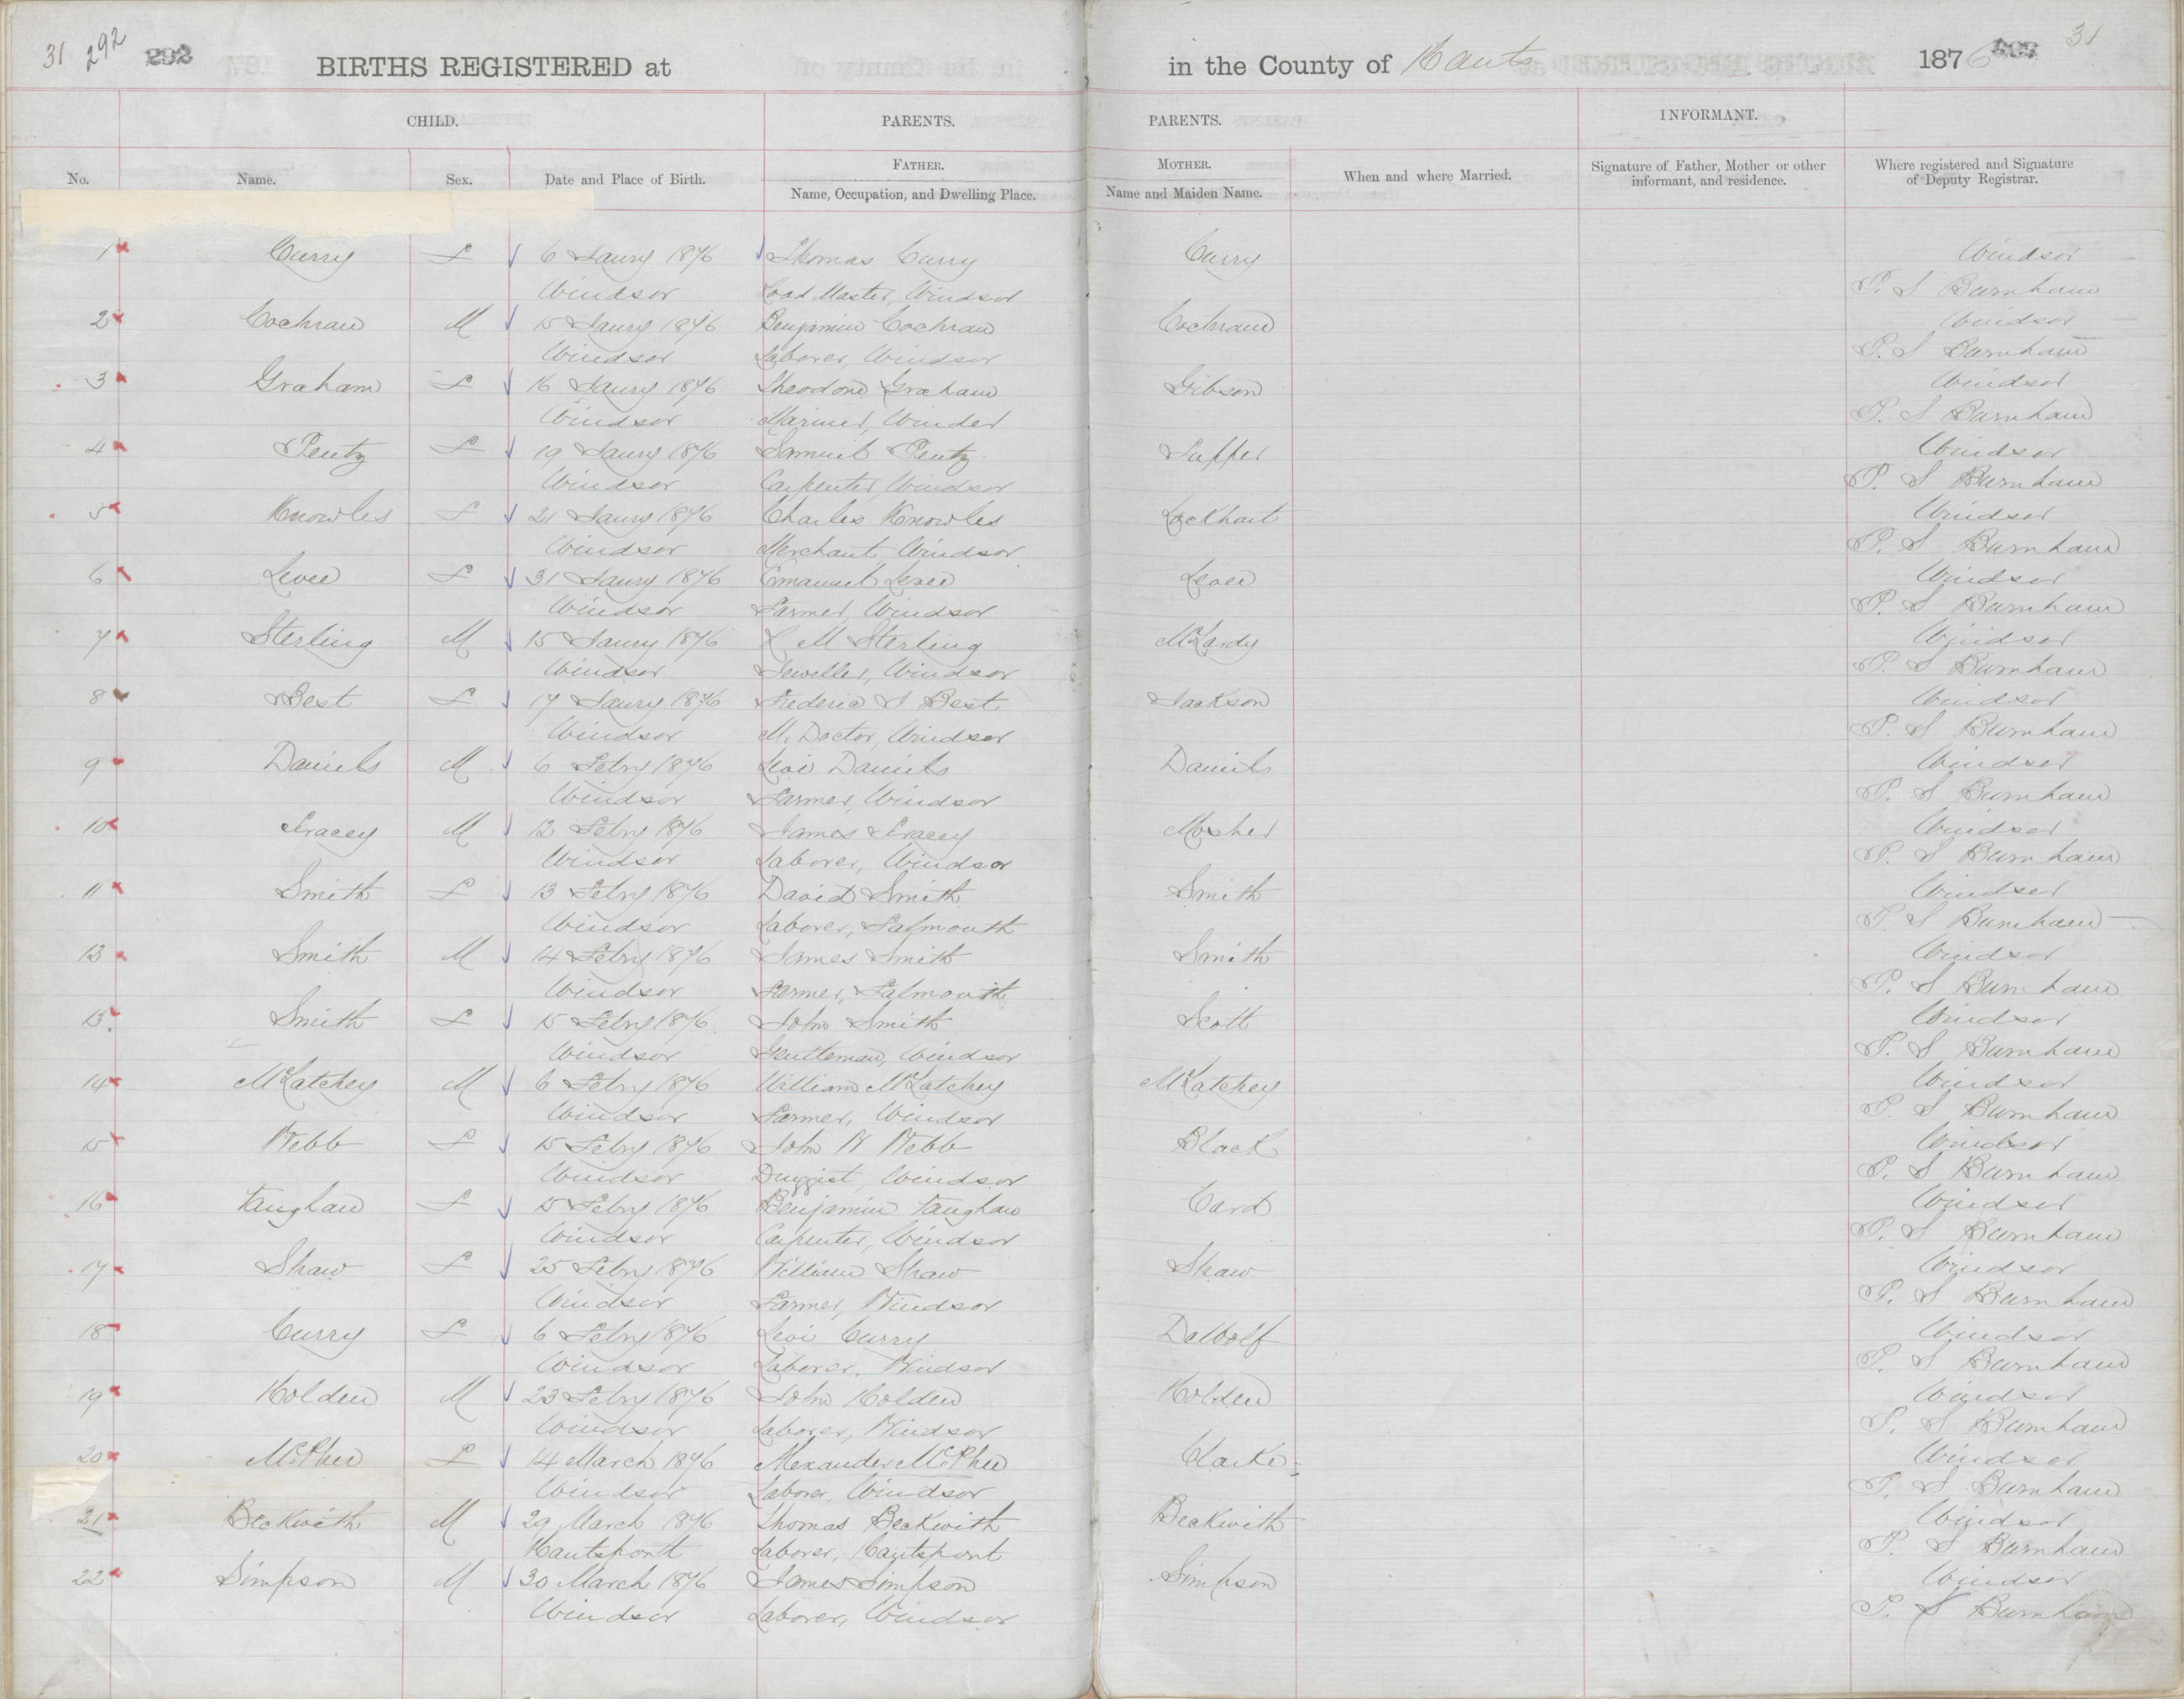 31 292 292 BIRTHS REGISTERED at in the County of Hants 1876 31
CHILD. PARENTS. PARENTS. INFORMANT.
No. Name. Sex. Date and Place of Birth. FATHER. Name, Occupation, and Dwelling Place. MOTHER. Name and Maiden Name. When and where Married. Signature of Father, Mother or other informant, and residence. Where registered and Signature of Deputy Registrar.
1 Curry F 6 Jaury 1876 Thomas Curry Curry Windsor
Windsor Road Master, Windsor P. S Burnham
2 Cochran M 15 Jaury 1876 Benjamin Cochran Cochran Windsor
Windsor Laborer, Windsor P. S Burnham
3 Graham F 16 Jaury 1876 Theodore Graham Gibson Windsor
Windsor Mariner, Windsor P. S Burnham
4 Pentz F 19 Jaury 1876 Samuel Pentz Windsor
Windsor Carpenter, Windsor P. S Burnham
5 Knowles F 21 Jaury 1876 Charles Knowles Lockhart Windsor
Windsor Merchant Windsor P. S Burnham
6 Levee F 31 Jaury 1876 Emanuel Levee Levee Windsor
Windsor Farmer, Windsor P. S Burnham
7 Sterling M 15 Jaury 1876 M Sterling McLardy Windsor
Windsor Jeweller, Windsor P. S Burnham
8 Best F 17 Jaury 1876 Frederic S Best Jackson Windsor
Windsor M. Doctor, Windsor P. S Burnham
9 Daniels M 6 Febry 1876 Levi Daniels Daniels Windsor
Windsor Farmer, Windsor P. S Burnham
10 Tracey M 12 Febry 1876 James Tracey Mosher Windsor
Windsor Laborer, Windsor P. S Burnham
11 Smith F 13 Febry 1876 David Smith Smith Windsor
Windsor Laborer, Falmouth P. S Burnham
12 Smith M 14 Febry 1876 James Smith Smith Windsor
Windsor Farmer, Falmouth P. S Burnham
13 Smith F 15 Febry 1876 John Smith Scott Windsor
Windsor Gentleman, Windsor P. S Burnham
14 McLatchey M 6 Febry 1876 William McLatchey McLatchey Windsor
Windsor Farmer, Windsor P. S Burnham
15 Webb F 15 Febry 1876 John W Webb Black Windsor
Windsor Duggist, Windsor P. S Burnham
16 Vaughan F 15 Febry 1876 Benjamin Vaughan Card Windsor
Windsor Carpenter, Windsor P. S Burnham
17 Shaw F 25 Febry 1876 William Shaw Shaw Windsor
Windsor Farmer, Windsor P. S Burnham
18 Curry F 6 Febry 1876 Levi Curry DeWolf Windsor
Windsor Laborer, Windsor P. S Burnham
19 Holden M 23 Febry 1876 John Holden Holden Windsor
Windsor Laborer, Windsor P. S Burnham
20 McPhee F 14 March 1876 Alexander McPhee Clarke Windsor
Windsor Laborer, Windsor P. S Burnham
21 Beckwith M 29 March 1876 Thomas Beckwith Beckwith Windsor
Hantsport Laborer, Hantsport P. S Burnham
22 Simpson M 30 March 1876 James Simpson Simpson Windsor
Windsor Laborer, Windsor P. S Burnham